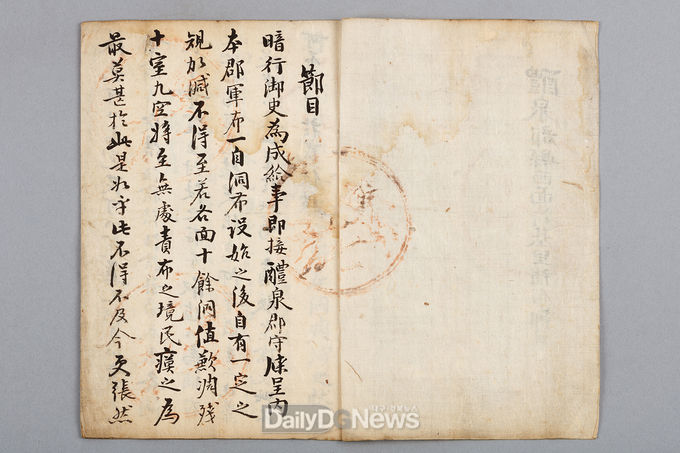 節目
暗行御史為成給事即接醴泉郡守牒呈內
本郡軍布一自洞布設始之後自有一定之
規加減不得至若各面十餘洞值歉凋殘
十室九空將至無處責布之境民瘼之為
最莫甚於此是如乎此不得不及今更張然
DailyDGNews